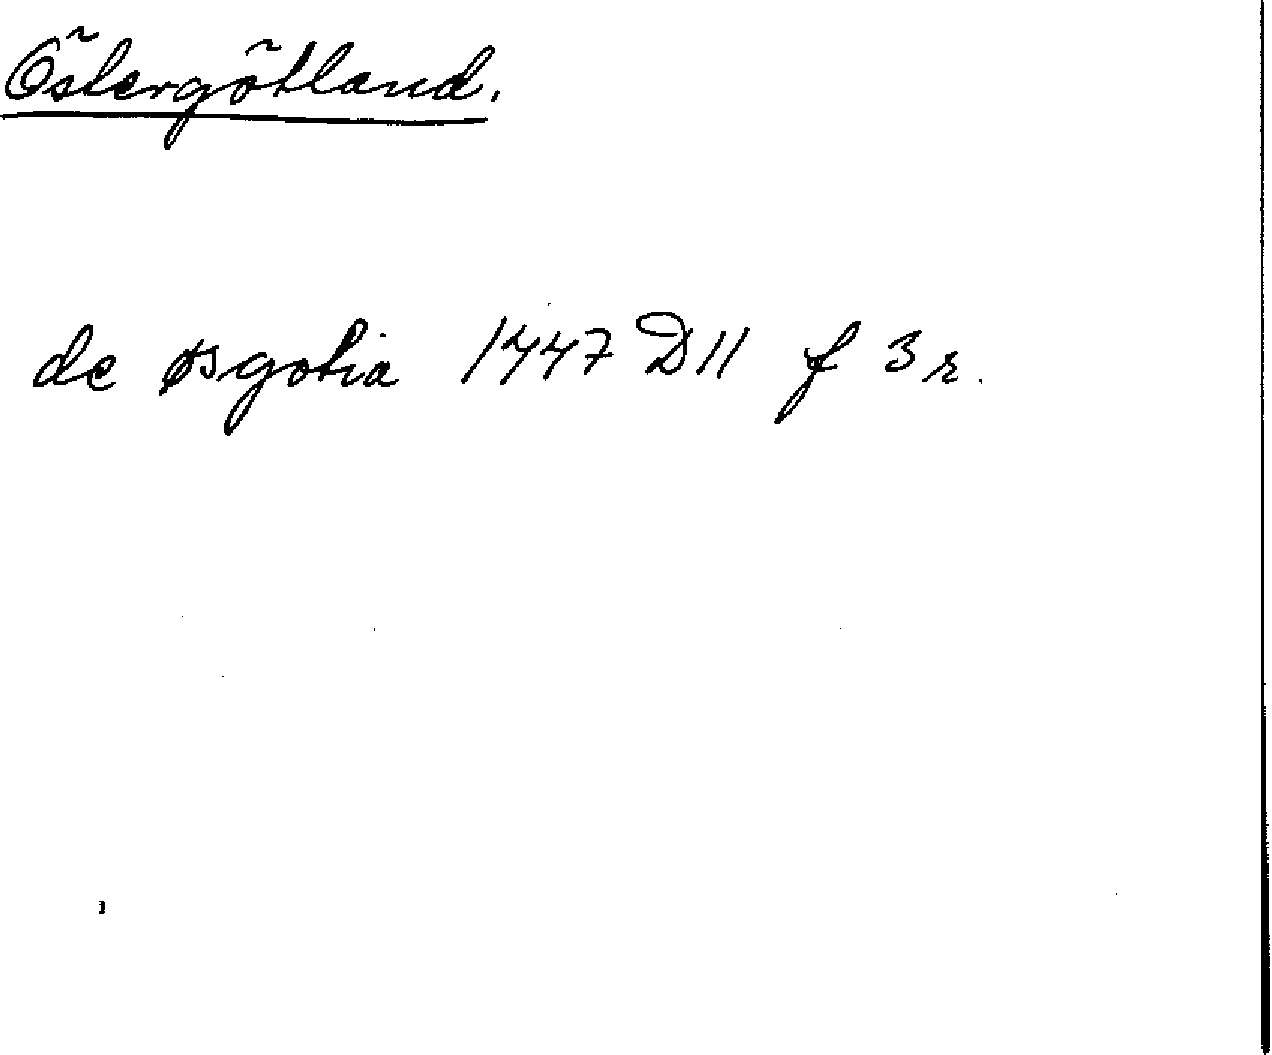 Östergötland.
de øsgotia 1447 D11 f 3 r.